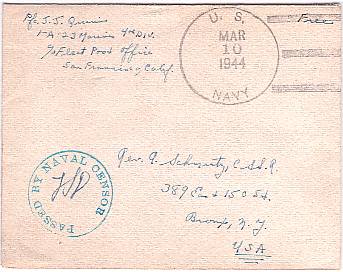 Pfc. J. J. Quinn
1-A-23 Marines 4th Div.
℅ Fleet Post Office
San Francisco, Calif.
U. S.
MAR
10
1944
NAVY
Free
PASSED BY NAVAL CENSOR
Rev. A. Schmitz, C.SS.R.
389 East 150 St.
Bronx, N. Y.
USA